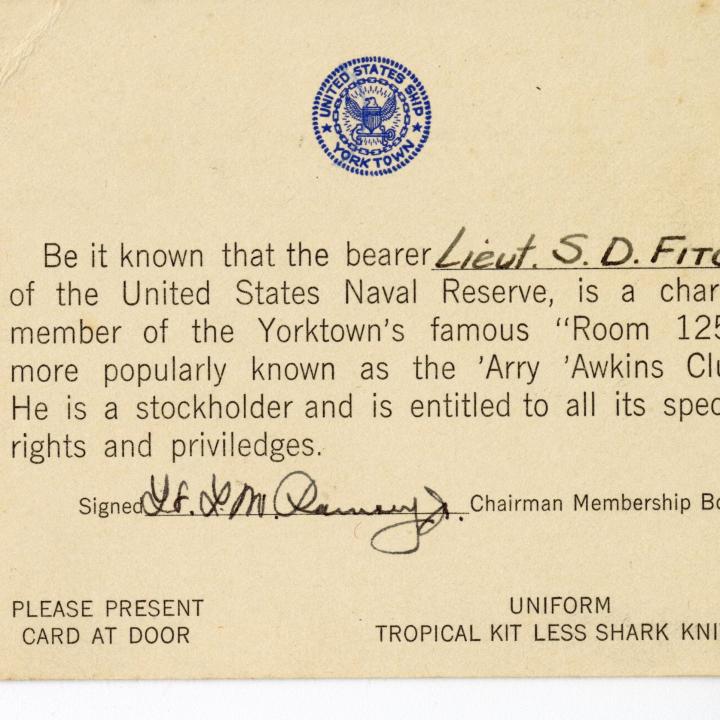 UNITED STATES SHIP
YORKTOWN
Be it known that the bearer Lieut. S. D. FITC
of the United States Naval Reserve, is a char
member of the Yorktown's famous "Room 125
more popularly known as the 'Arry 'Awkins Clu
He is a stockholder and is entitled to all its spec
rights and priviledges.
Signed Lt. L. M. Ramsey Jr. Chairman Membership Bo
PLEASE PRESENT
CARD AT DOOR
UNIFORM
TROPICAL KIT LESS SHARK KNI